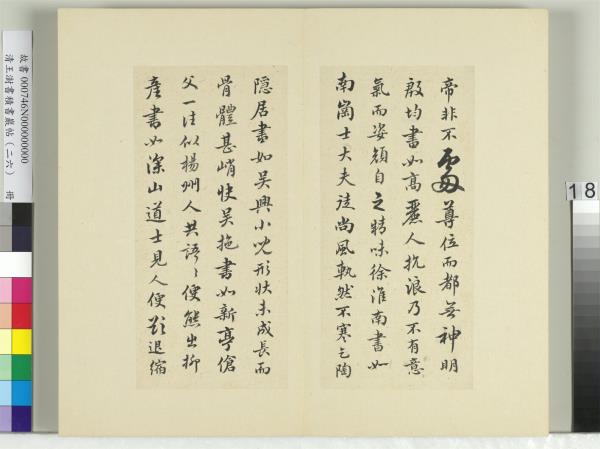 帝非不處尊位而都無神明
殷均書如高麗人抗浪乃不有意
氣而姿顏自乏精味徐淮南書如
南崗士大夫徒尚風軌然不寒乞陶
隱居書如吳興小兒形狀未成長而
骨體甚峭快吳拖書如新亭傖
父一往似楊州人共語〻便態出柳
產書如深山道士見人便欲退縮
故書 000746N000000000
清王澍書積書巖帖(二六) 冊
18